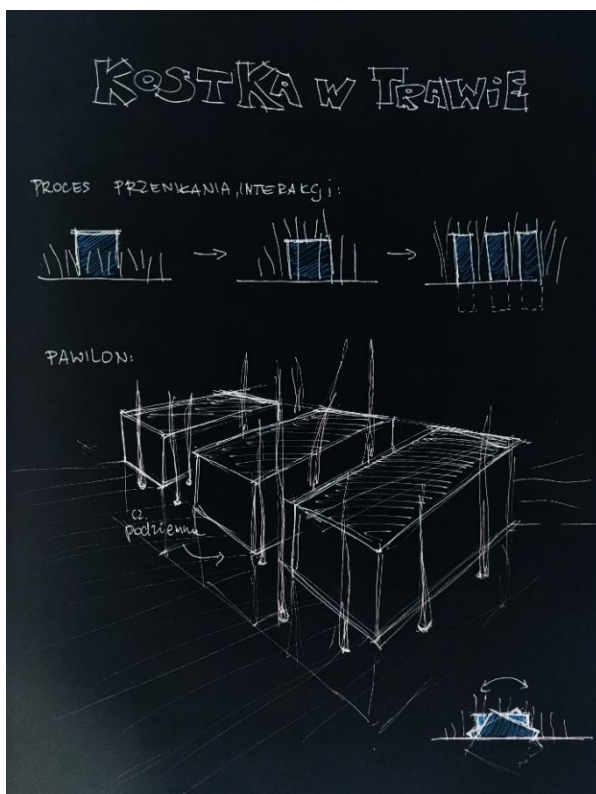 KOSTKA W TRAWIE
PROCES PRZENIKANIA, INTERAKCJI:
PAWILON:
cz.
podziemna